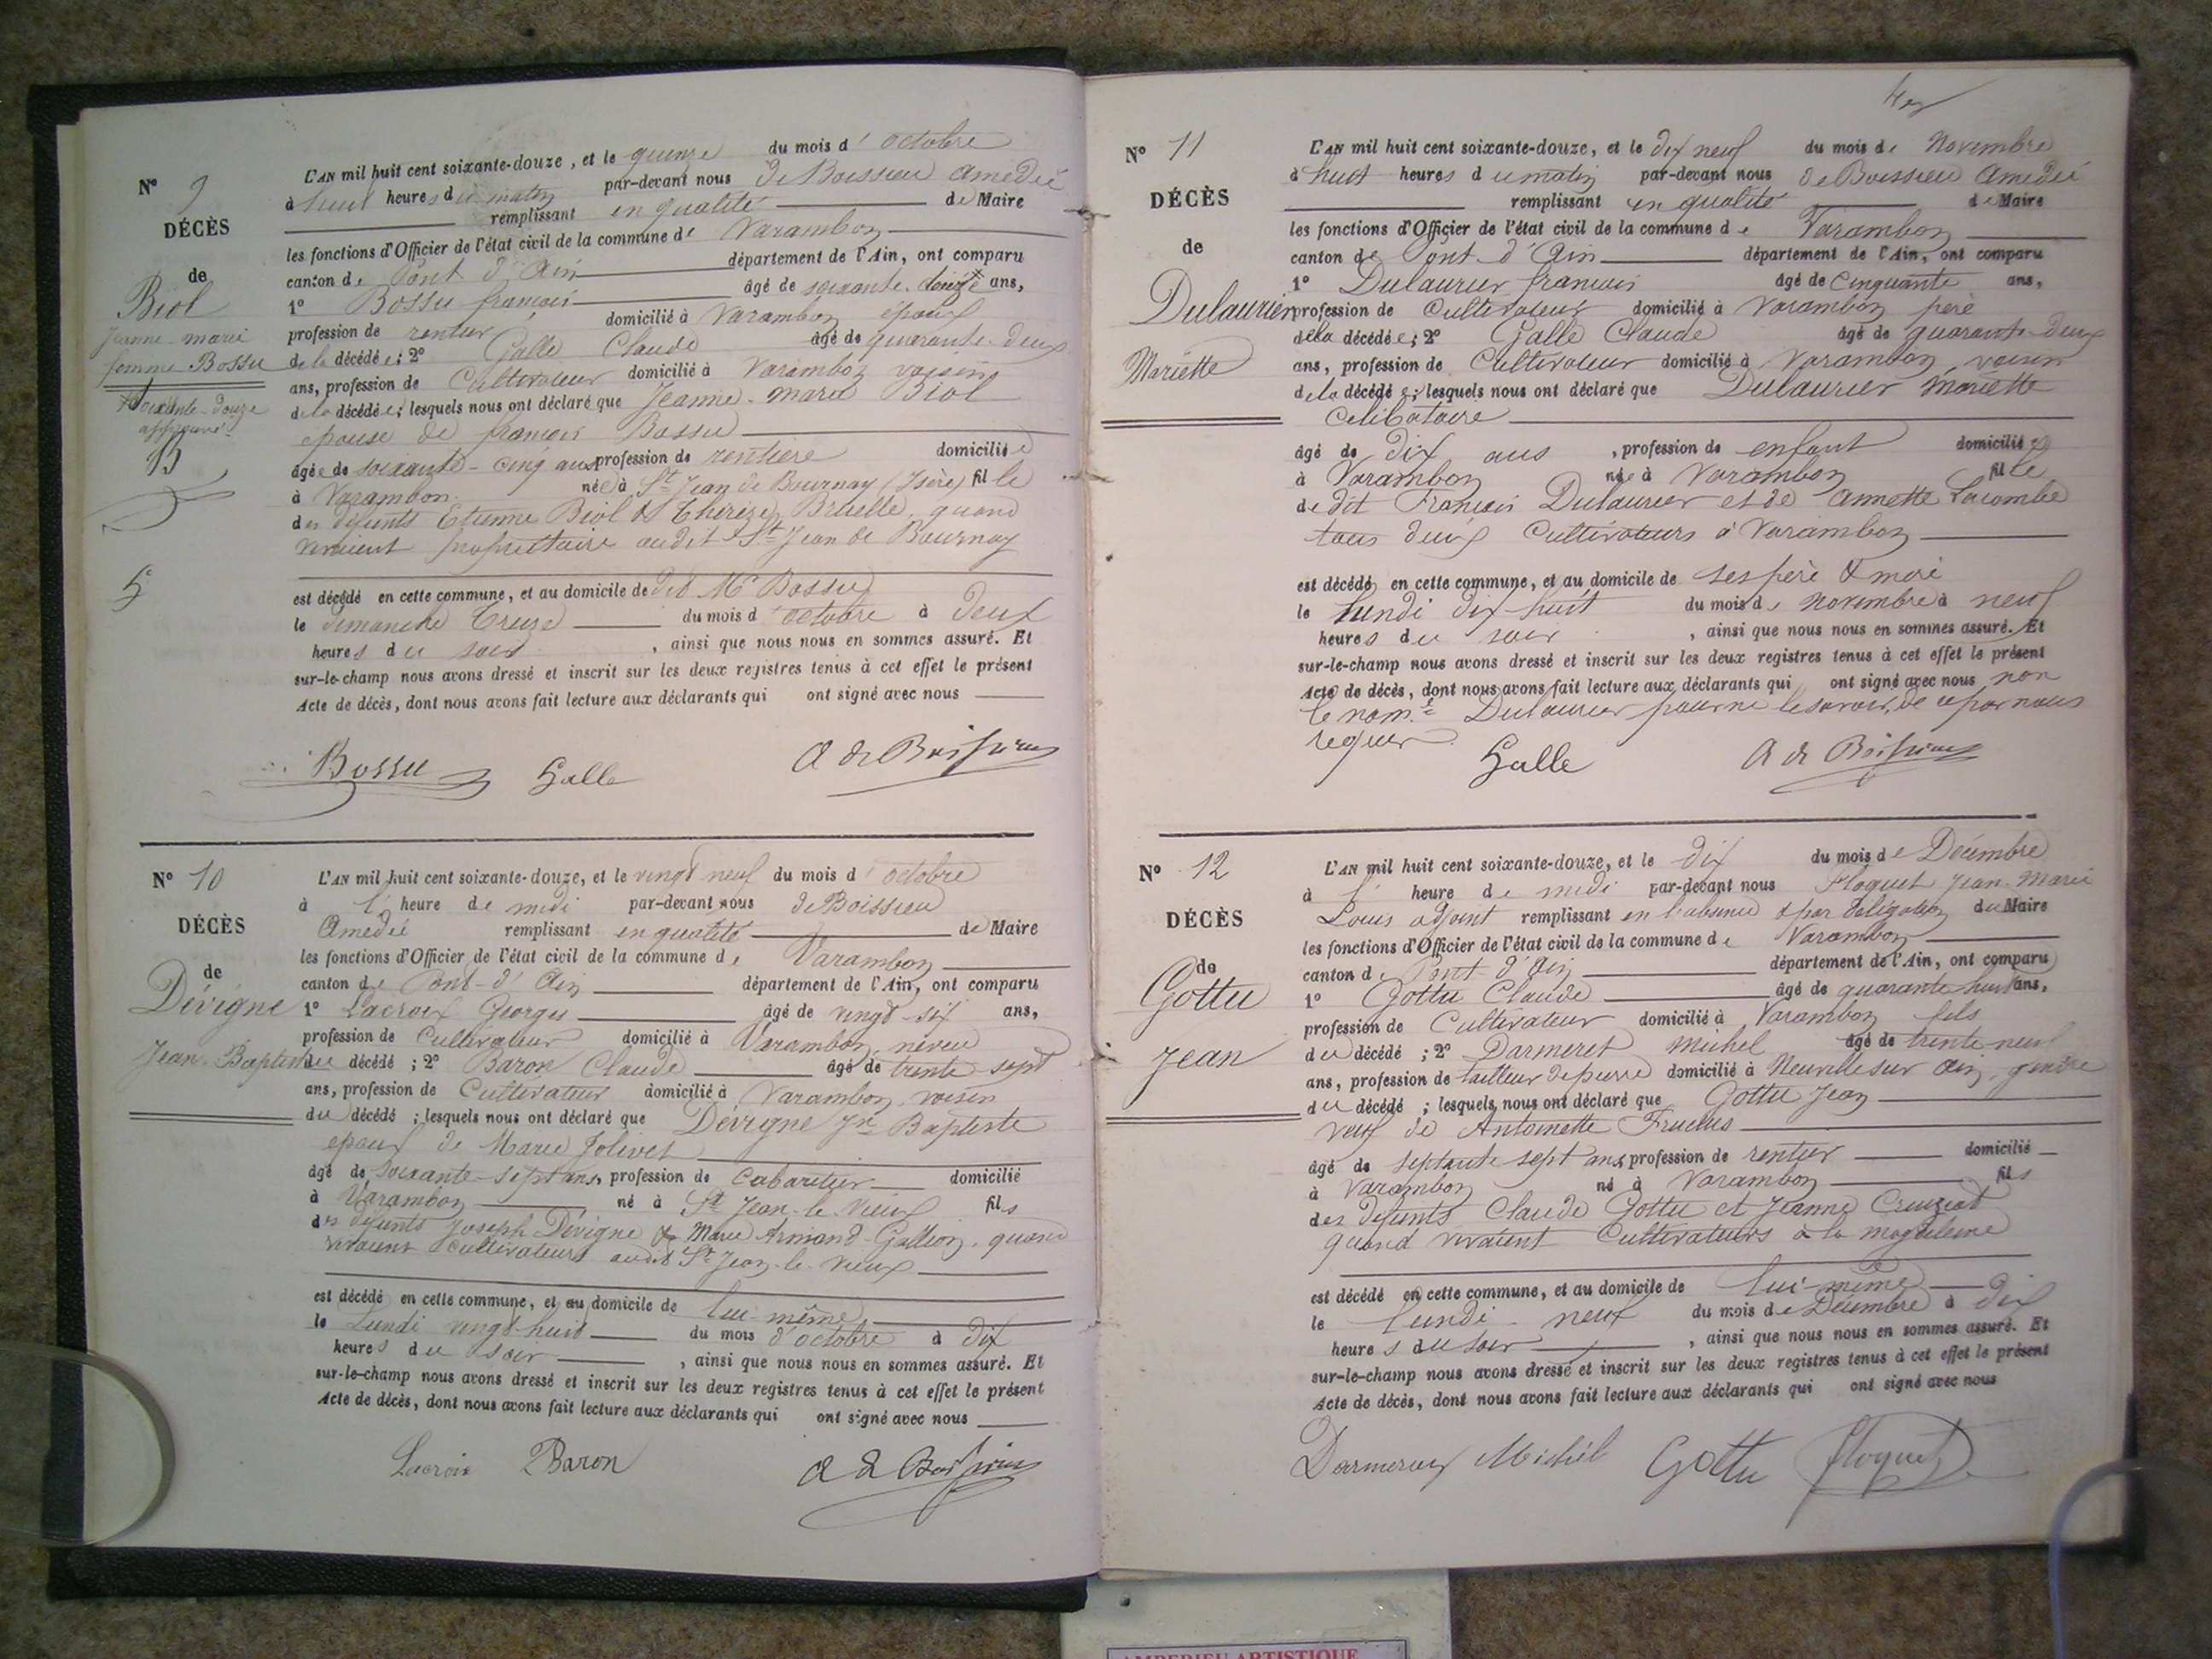 N° 9
DÉCÈS
de
Biol
Jeanne-marie
femme Bossu
soixante-douze
approuvé
B
G
L'AN mil huit cent soixante-douze, et le quinze du mois d'octobre
à huit heures du matin par-devant nous de Boissieu Amédée
remplissant en qualité de Maire
les fonctions d'Officier de l'état civil de la commune de Varambon
canton de Pont d'Ain département de l'Ain, ont comparu
1° Bossu françois âgé de soixante-douze ans,
profession de rentier domicilié à Varambon époux
de la décédée; 2° Galle Claude âgé de quarante-deux
ans, profession de Cultivateur domicilié à Varambon voisin
de la décédée; lesquels nous ont déclaré que Jeanne-marie Biol
épouse de françois Bossu
âgée de soixante-cinq ans profession de rentière domiciliée
à Varambon née à St Jean de Bournay (Isère) fille
des défunts Etienne Biol & Thérèze Brielle, quand
vivaient propriétaire audit St Jean de Bournay
est décédé en cette commune, et au domicile de dit Mr Bossu
le dimanche treize du mois d'octobre à deux
heures du soir, ainsi que nous nous en sommes assuré. Et
sur-le-champ nous avons dressé et inscrit sur les deux registres tenus à cet effet le présent
Acte de décès, dont nous avons fait lecture aux déclarants qui ont signé avec nous
Bossu Galle A de Boissieu
N° 10
DÉCÈS
de
Dévigne
Jean-Baptiste
L'AN mil huit cent soixante-douze, et le vingt neuf du mois d'octobre
à 1 heure de midi par-devant nous de Boissieu
Amédée remplissant en qualité de Maire
les fonctions d'Officier de l'état civil de la commune de Varambon
canton de Pont-d'Ain département de l'Ain, ont comparu
1° Lacroix Georges âgé de vingt-six ans,
profession de Cultivateur domicilié à Varambon, neveu
du décédé; 2° Baron Claude âgé de trente sept
ans, profession de Cultivateur domicilié à Varambon, voisin
du décédé; lesquels nous ont déclaré que Dévigne Jn Baptiste
époux de Marie Jolivet
âgé de soixante-sept ans, profession de Cabaretier domicilié
à Varambon né à St Jean-le-Vieux fils
des défunts Joseph Dévigne & Marie Armand-Gallion, quand
vivaient cultivateurs audit St Jean-le-vieux
est décédé en cette commune, et au domicile de lui-même
le Lundi vingt-huit du mois d'octobre à dix
heures du soir, ainsi que nous nous en sommes assuré. Et
sur-le-champ nous avons dressé et inscrit sur les deux registres tenus à cet effet le présent
Acte de décès, dont nous avons fait lecture aux déclarants qui ont signé avec nous
Lacroix Baron A de Boissieu
N° 11
DÉCÈS
de
Dulaurier
Mariette
L'AN mil huit cent soixante-douze, et le dix neuf du mois de Novembre
à huit heures du matin par-devant nous de Boissieu Amédée
remplissant en qualité de Maire
les fonctions d'Officier de l'état civil de la commune de Varambon
canton de Pont-d'Ain département de l'Ain, ont comparu
1° Dulaurier francois âgé de Cinquante ans,
profession de Cultivateur domicilié à Varambon père
de la décédée; 2° Galle Claude âgé de quarante-deux
ans, profession de Cultivateur domicilié à Varambon, voisin
de la décédée; lesquels nous ont déclaré que Dulaurier Mariette
Celibataire
âgé de dix ans, profession de enfant domiciliée
à Varambon née à Varambon fille
de dit François Dulaurier et de Annette Lacombe
tous deux Cultivateurs à Varambon
est décédé en cette commune, et au domicile de ses père & mère
le lundi dix-huit du mois de Novembre à neuf
heures du soir, ainsi que nous nous en sommes assuré. Et
sur-le-champ nous avons dressé et inscrit sur les deux registres tenus à cet effet le présent
Acte de décès, dont nous avons fait lecture aux déclarants qui ont signé avec nous non
le nomé Dulaurier pour ne le savoir, de ce par nous
requer
Galle A de Boissieu
N° 12
DÉCÈS
de
Gottu
Jean
L'AN mil huit cent soixante-douze, et le dix du mois de Décembre
à 1 heure de midi par-devant nous Floquet Jean-Marie
Louis adjoint remplissant en l'absence & par délégation du Maire
les fonctions d'Officier de l'état civil de la commune de Varambon
canton de Pont d'Ain département de l'Ain, ont comparu
1° Gottu Claude âgé de quarante huit ans,
profession de Cultivateur domicilié à Varambon fils
du décédé; 2° Darmeret Michel âgé de trente neuf
ans, profession de tailleur de pierre domicilié à Neuville sur Ain, gendre
du décédé; lesquels nous ont déclaré que Gottu Jean
veuf de Antoinette Fructus
âgé de septante sept ans, profession de rentier domicilié
à Varambon né à Varambon fils
des défunts Claude Gottu et Jeanne Cruziat
quand vivaient Cultivateurs à la magdeleine
est décédé en cette commune, et au domicile de lui-même
le lundi neuf du mois de Décembre à dix
heures du soir, ainsi que nous nous en sommes assuré. Et
sur-le-champ nous avons dressé et inscrit sur les deux registres tenus à cet effet le présent
Acte de décès, dont nous avons fait lecture aux déclarants qui ont signé avec nous
Darmeray Michel Gottu Floquet
AMPERIEU ARTISTIQUE